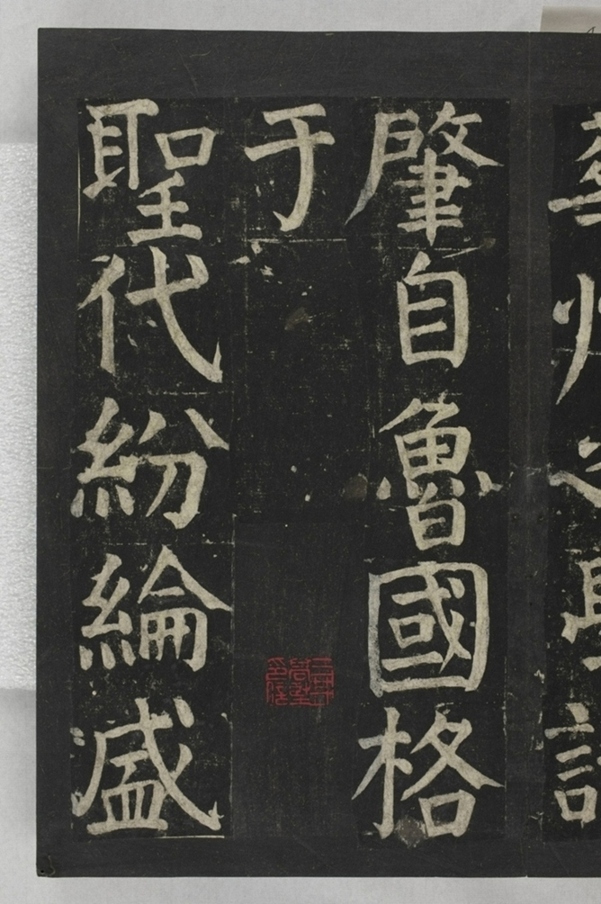 肇自魯國格
于
聖代紛綸盛